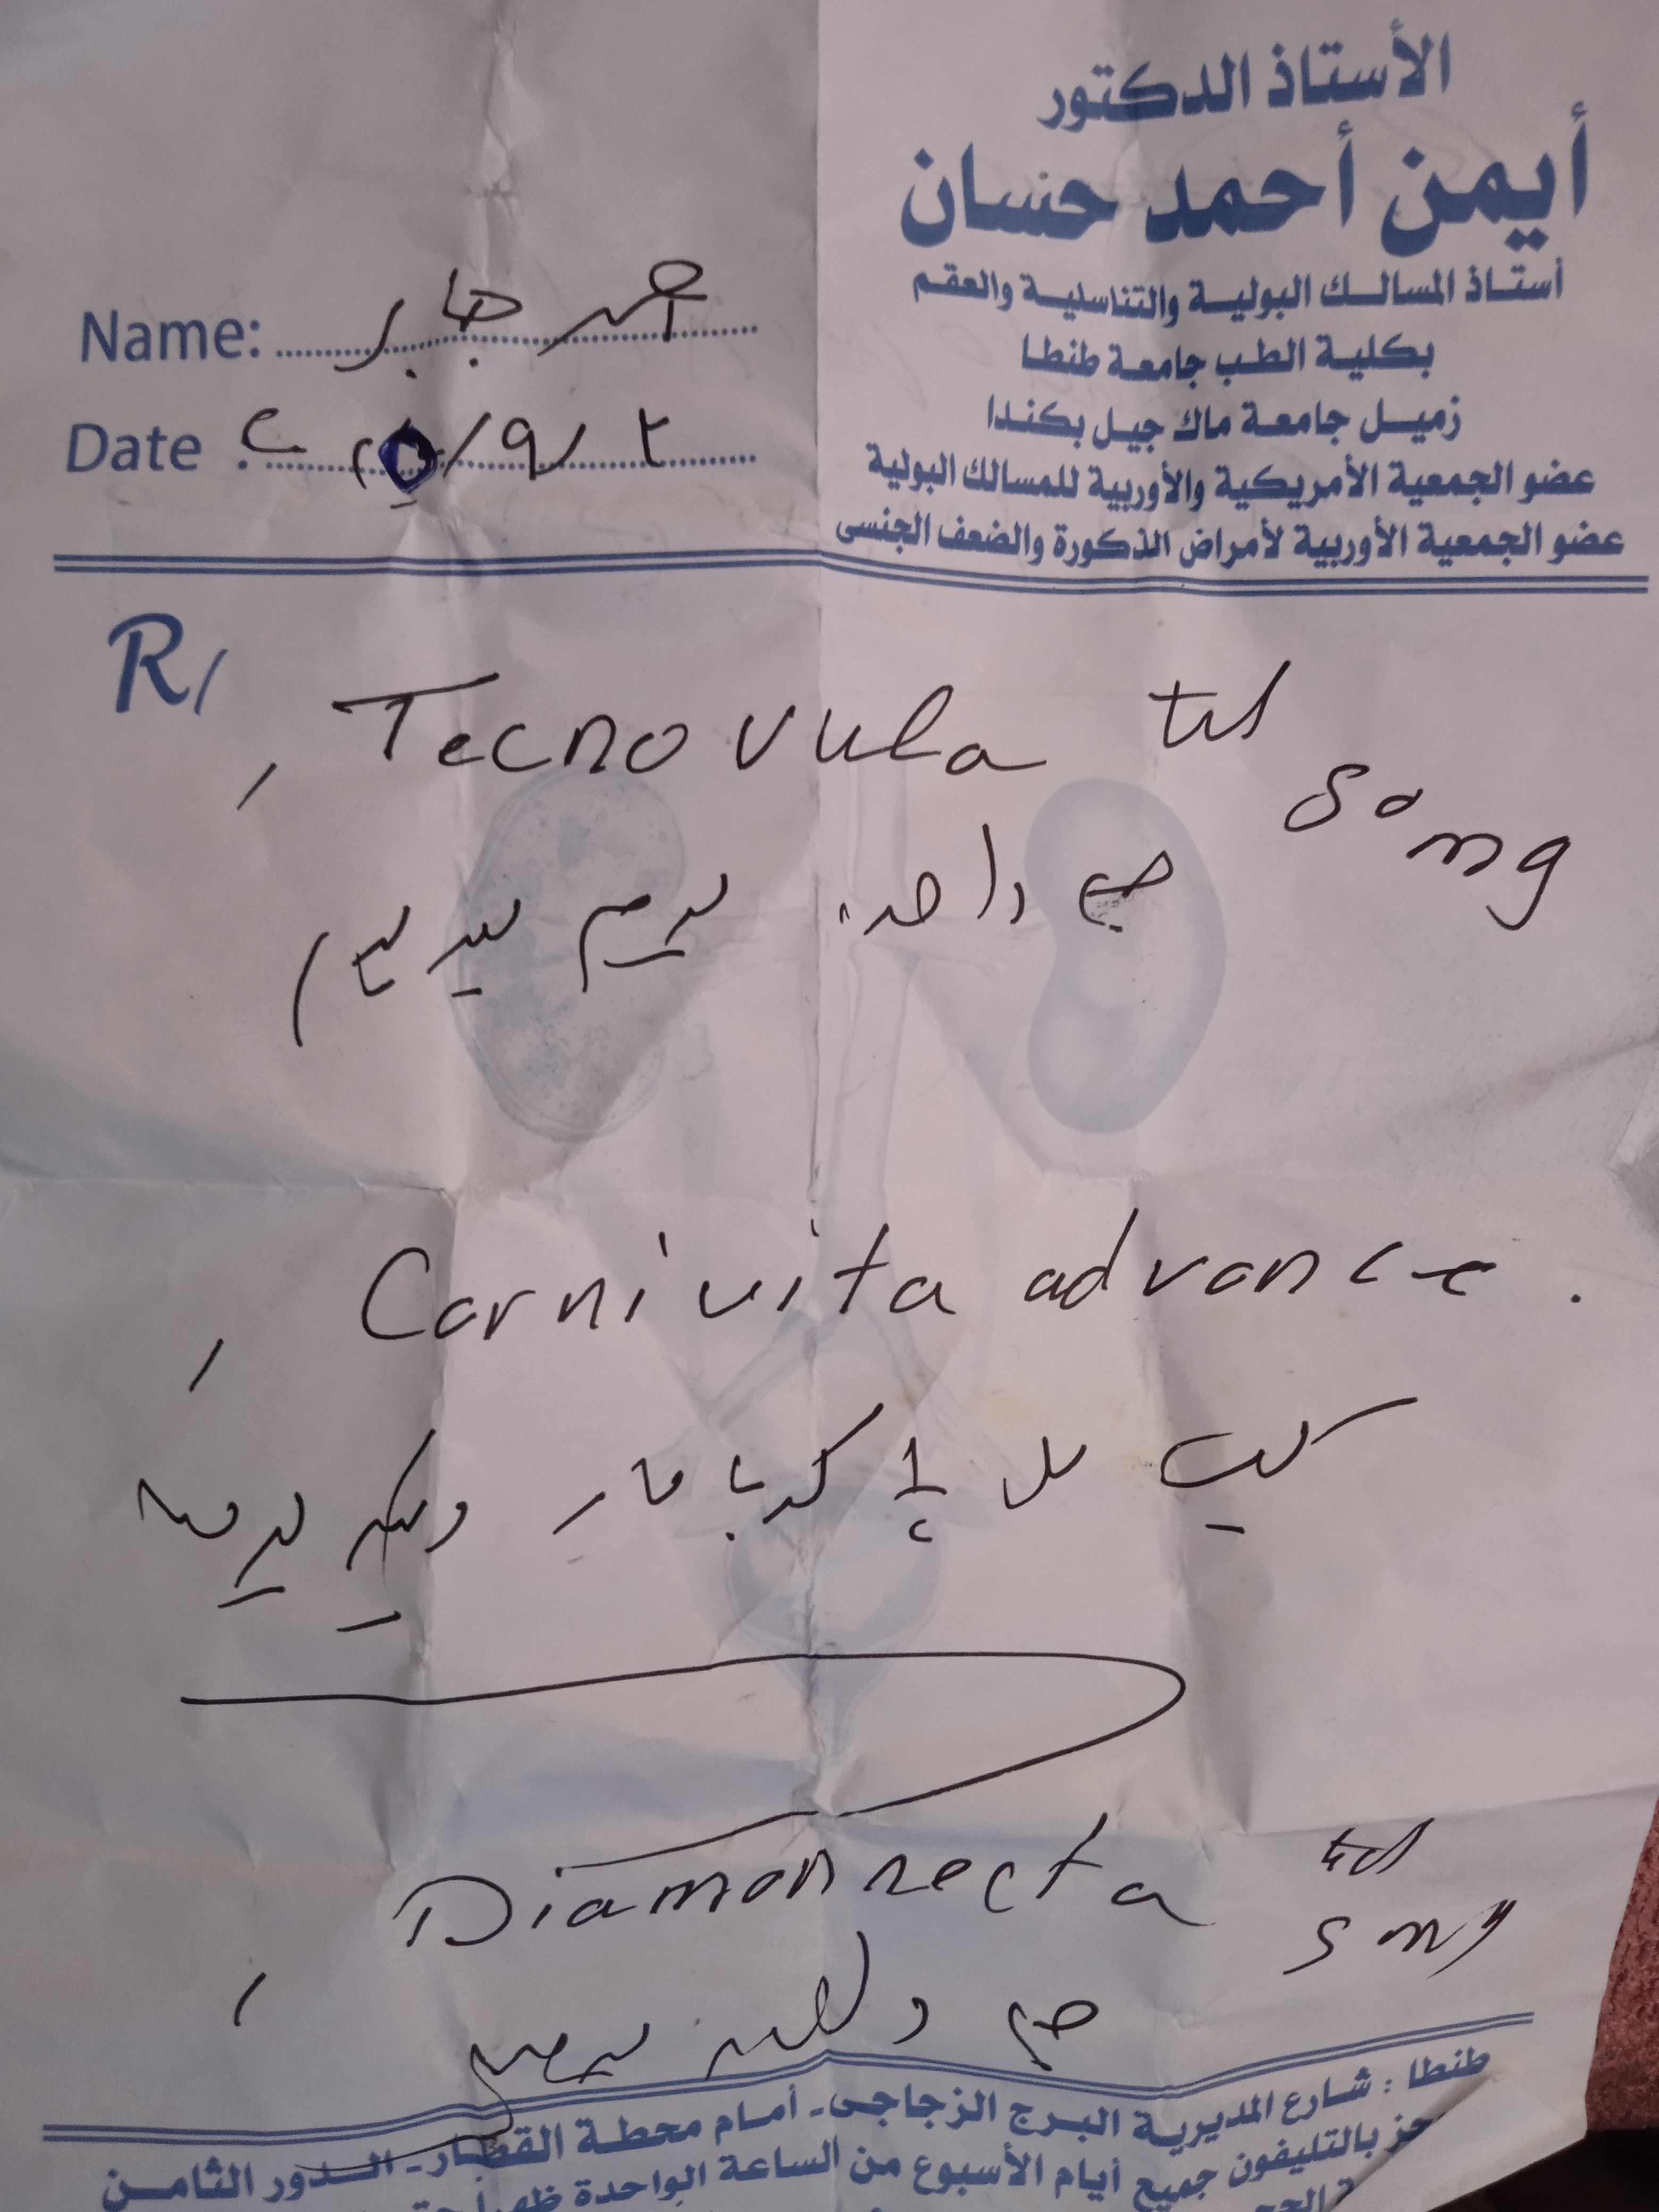 الأستاذ الدكتور
أيمن أحمد حسان
أستاذ المسالك البولية والتناسلية والعقم
بكلية الطب جامعة طنطا
زميل جامعة ماك جيل بكندا
عضو الجمعية الأمريكية والأوربية للمسالك البولية
عضو الجمعية الأوربية لأمراض الذكورة والضعف الجنسى
Name: احمد جابر
Date ٢ / ٩ /
R/
Tecnovula
50 mg
واحدة يوم
Carnivita advance.
كيس على كوباية يوميا
Diamonrecta
5 mg
قرص يوميا
طنطا : شارع المديرية البرج الزجاجى - أمام محطة القطار - الدور الثامن
بالتليفون جميع أيام الأسبوع من الساعة الواحدة ظهرا